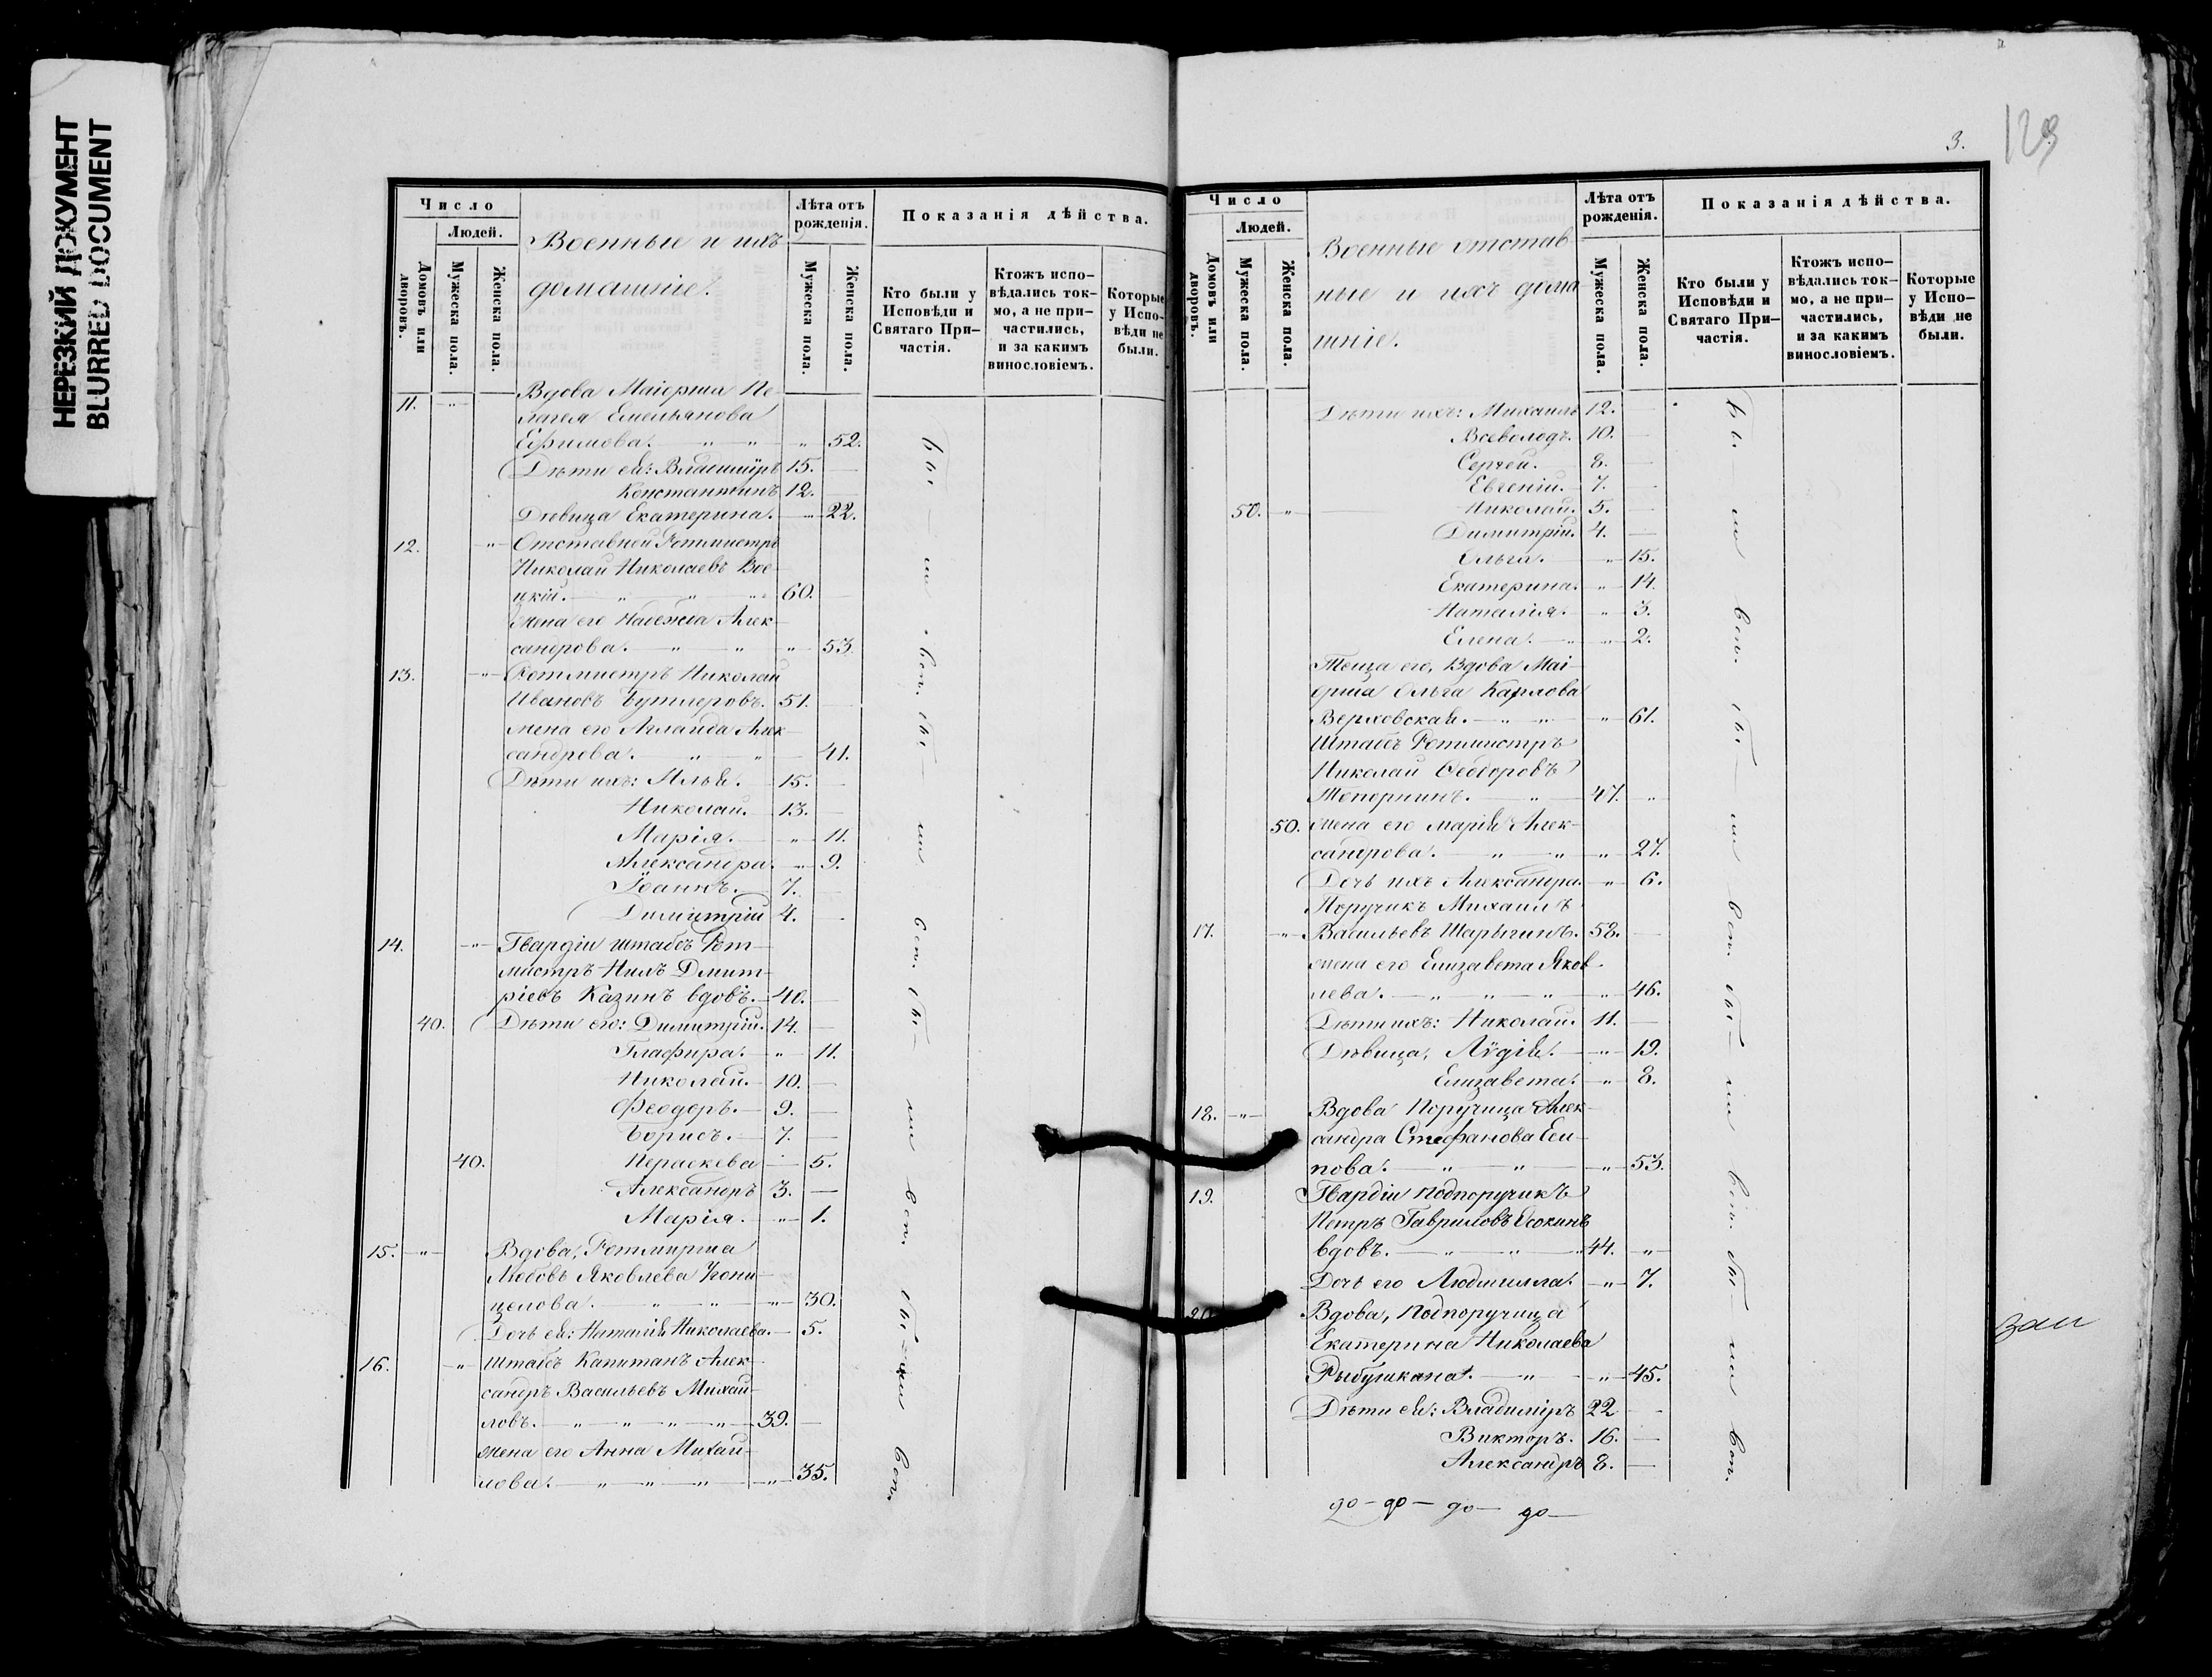 НЕРЕЗКИЙ ДОКУМЕНТ
BLURRED DOCUMENT
Число
Людей.
Домовъ или дворовъ.
Мужеска пола.
Женска пола.
Военные и ихъ
домашніе.
Лѣта отъ рожденія.
Мужеска пола.
Женска пола.
Показанія дѣйства.
Кто были у Исповѣди и Святаго При-
частія.
Ктожъ испо-
вѣдались ток-
мо, а не при-
частились,
и за какимъ
винословіемъ.
Которые
у Испо-
вѣди не
были.
11. Вдова Маіорша Пе-
лагея Емельянова
Ефимова. 52.
Дѣти ея: Владиміръ 15.
Константинъ 12.
Дѣвица Екатерина. 22.
12. Отставной Ротмистръ
Николай Николаевъ Вое-
цкій. 60.
Жена его Надежда Алек-
сандрова. 53.
13. Ротмистръ Николай
Ивановъ Бутлеровъ. 51.
Жена его Аглаида Алек-
сандрова. 41.
Дѣти ихъ: Илья. 15.
Николай. 13.
Марія. 11.
Александра. 9.
Іоаннъ. 7.
Димитрій 4.
14. Гвардіи штабсъ Рот-
мистръ Нилъ Дмит-
ріевъ Казинъ вдовъ. 40.
40. Дѣти его: Димитрій. 14.
Глафира. 11.
Николай. 10.
Феодоръ. 9.
Борисъ. 7.
40. Параскева 5.
Александръ 3.
Марія. 1.
15. Вдова, Ротмирша
Любовь Яковлева
30.
Дочь ея: Наталія Николаева. 5.
16. Штабсъ Капитанъ Алек-
сандръ Васильевъ Михай-
ловъ. 39.
Жена его Анна Михай-
лова. 35.
3.
129
Число
Людей.
Домовъ или дворовъ.
Мужеска пола.
Женска пола.
Военные отстав-
ные и ихъ дома
шніе.
Лѣта отъ рожденія.
Мужеска пола.
Женска пола.
Показанія дѣйства.
Кто были у
Исповѣди и
Святаго При-
частія.
Ктожъ испо-
вѣдались ток-
мо, а не при-
частились,
и за какимъ
винословіемъ.
Которые
у Испо-
вѣди не
были.
Дѣти ихъ: Михаилъ 12.
Всеволодъ. 10.
Сергей. 8.
Евгеній. 7.
50. Николай. 5.
Димитрій. 4.
Ольга. 15.
Екатерина. 14.
Наталія. 3.
Елена. 2.
Теща его, Вдова Маі-
орша Ольга Карлова
Верховская. 61.
Штабсъ Ротмистръ
Николай Феодоровъ
Тепорнинъ. 47.
50. Жена его Марія Алек-
сандрова. 27.
Дочь ихъ Александра. 6.
Поручикъ Михаилъ
17. Васильевъ Шарыгинъ. 58.
Жена его Елизавета Яков-
лева. 46.
Дѣти ихъ: Николай. 11.
Дѣвица, Лѵдія. 19.
Елизавета. 8.
18. Вдова Поручица Алек-
сандра Стефанова Еси-
пова. 53.
19. Гвардіи Подпоручикъ
Петръ Гавриловъ Осокинъ
вдовъ. 44.
Дочь его Людмилла. 7.
20. Вдова, Подпоручица
Екатерина Николаева
Рыбушкана. 45.
Дѣти ея: Владиміръ 22
Викторъ. 16.
Александръ 8.
до - до - до - до